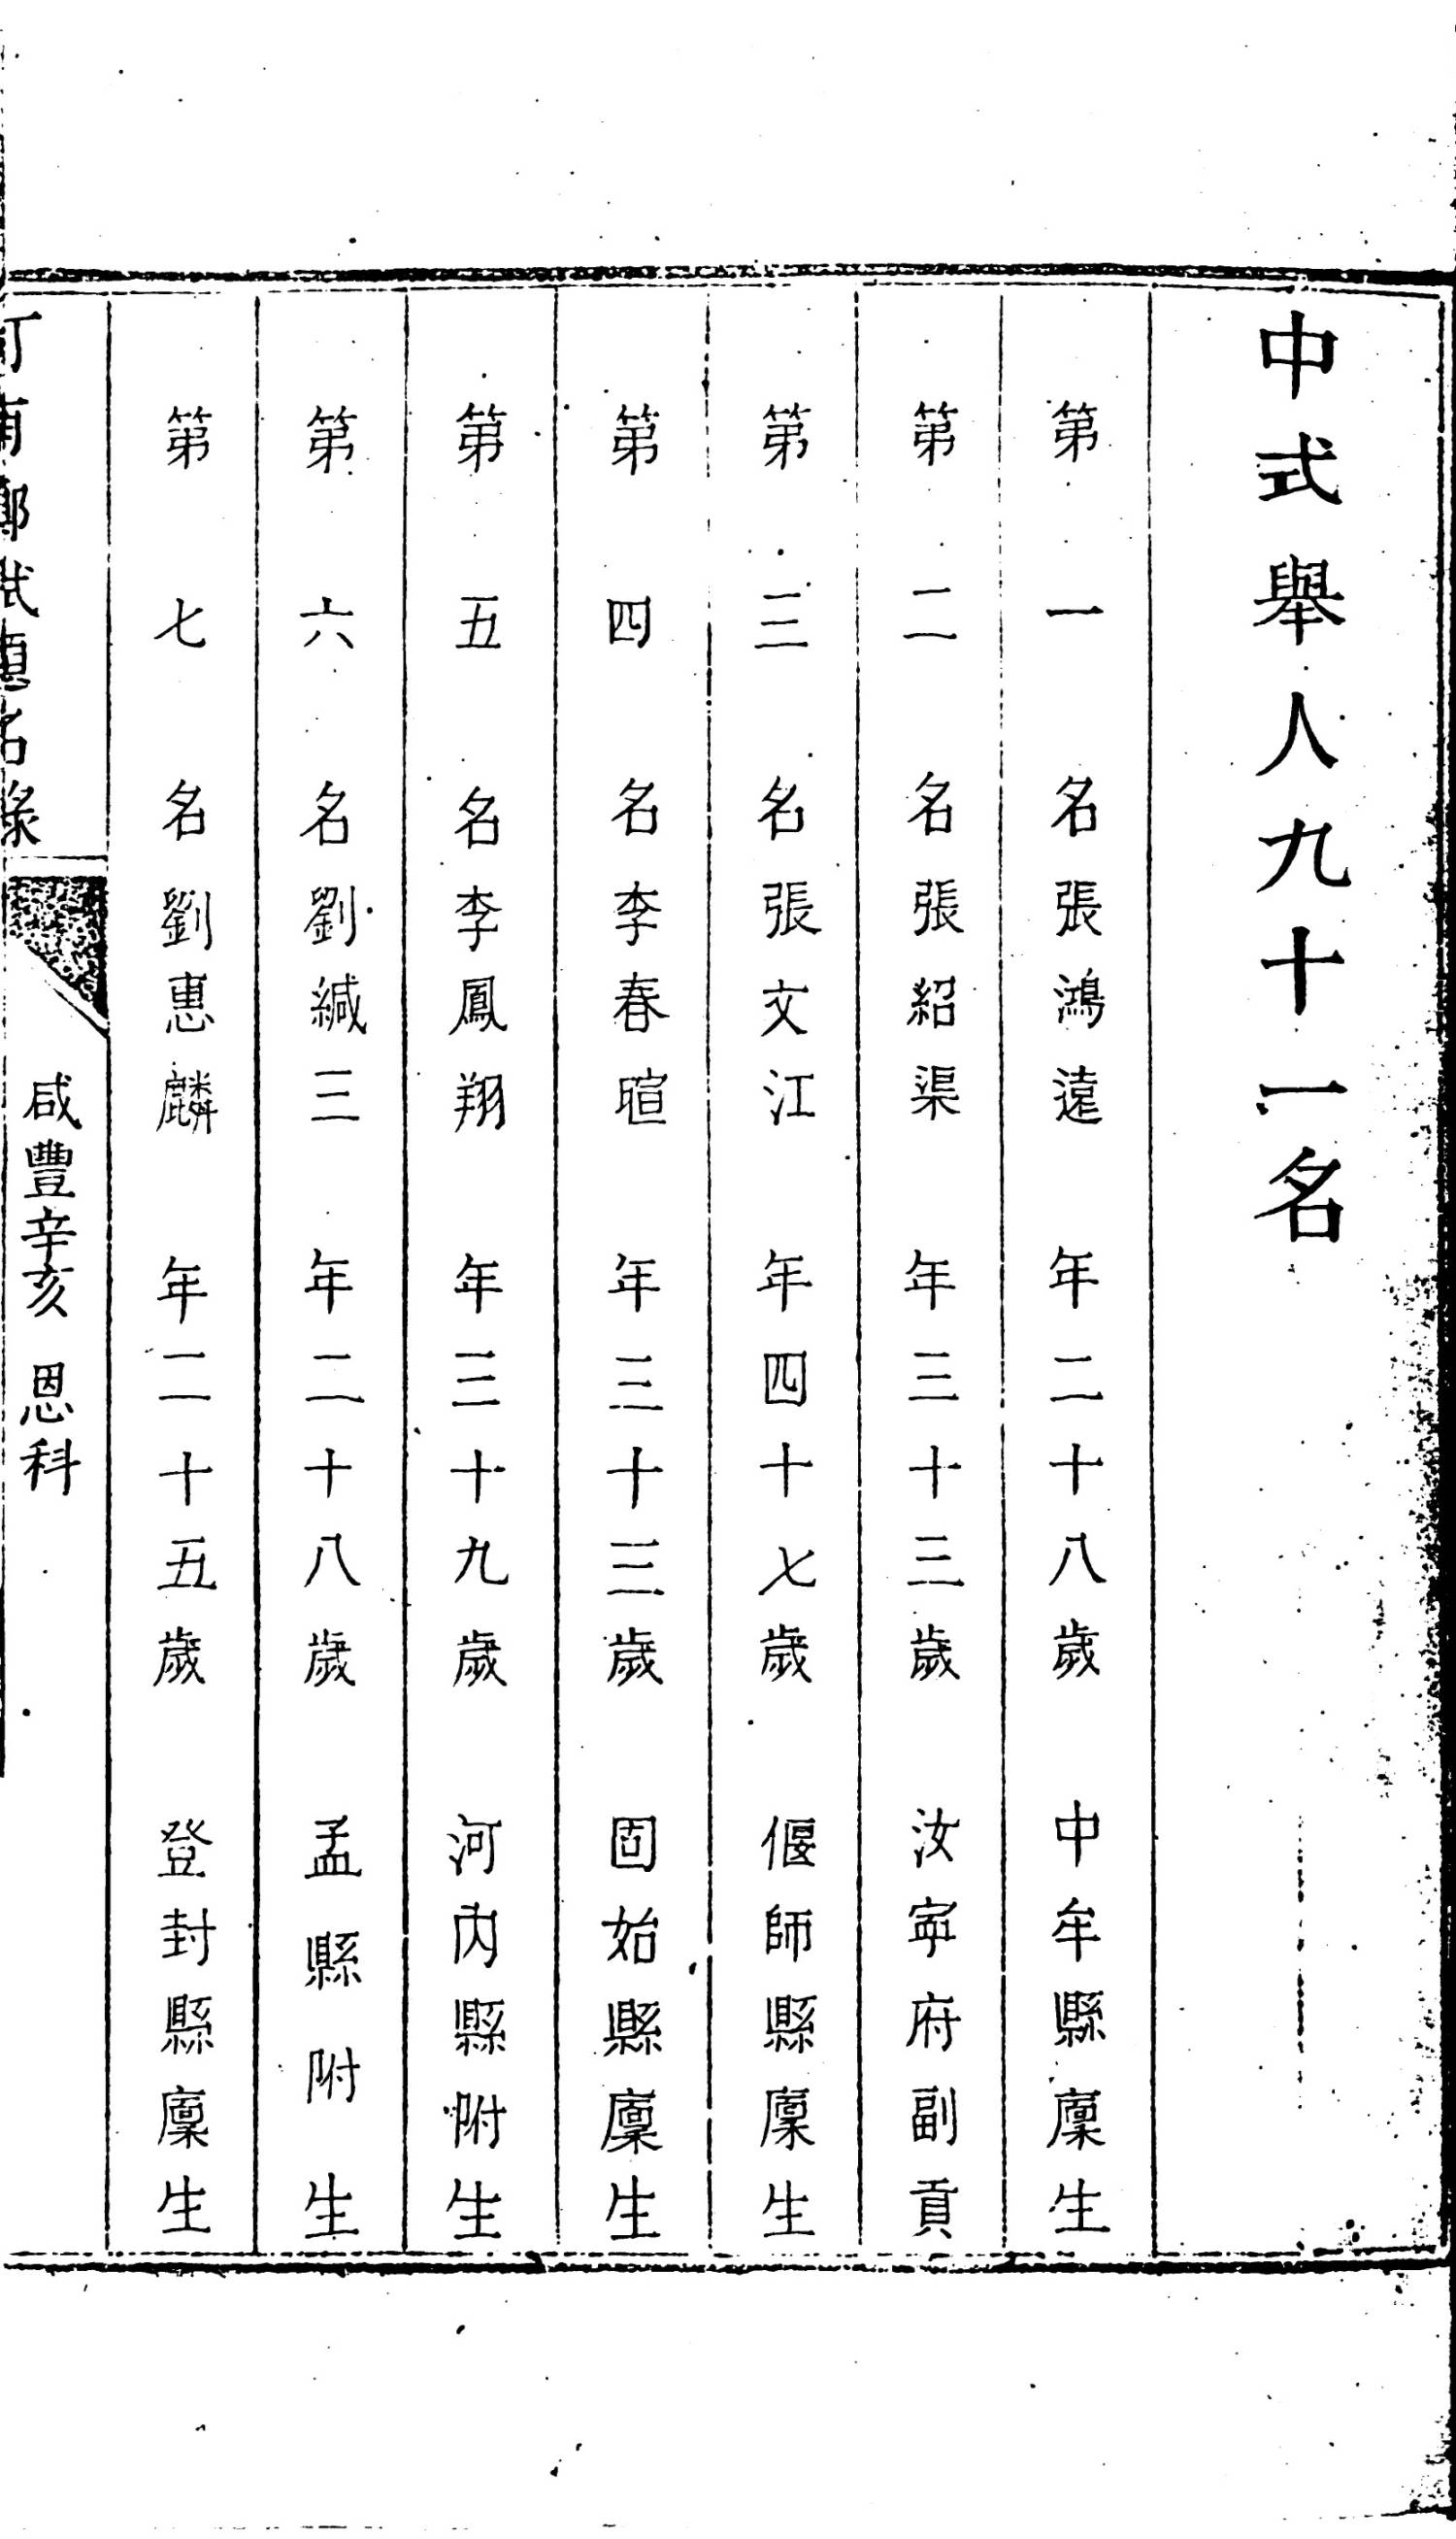 中式舉人九十一名
第一名張鴻遠 年二十八歲 中牟縣廩生
第二名張紹渠 年三十三歲 汝寧府副貢
第三名張文江 年四十七歲 偃師縣廩生
第四名李春暄 年三十三歲 固始縣廩生
第五名李鳳翔 年三十九歲 河内縣附生
第六名劉緘三 年二十八歲 孟縣附生
第七名劉惠麟 年二十五歲 登封縣廩生
河南鄉試題名錄 咸豐辛亥 恩科